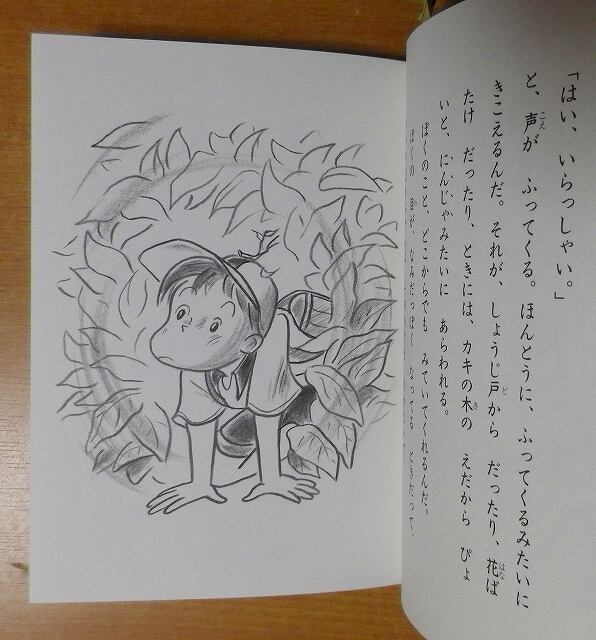 「はい、いらっしゃい。」
と、声が ふってくる。ほんとうに、ふってくるみたいに
きこえるんだ。それが、しょうじ戸から だったり、花ば
たけ だったり、ときには、カキの木の えだから ぴょ
いと、にんじゃみたいに あらわれる。
ぼくのこと、どこからでも みていてくれるんだ。
ぼくの 目が、なみだっぽく なってる ときだって、